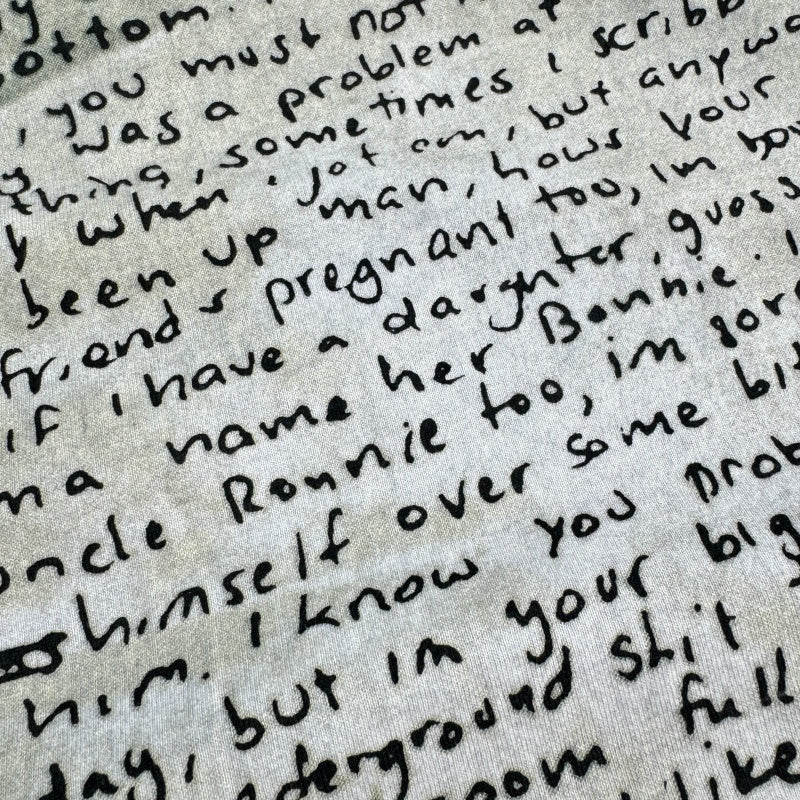 ottom.
, you must not
was a problem at
thing, sometimes i scribb
y when i jot em, but anywa
been up man, hows your
friend s pregnant too, im
if i have a daughter, guess
na name her Bonnie.
uncle Ronnie too, im sor
himself over some bi
him. I know you prob
day, but im your big
derground shit
room full
like